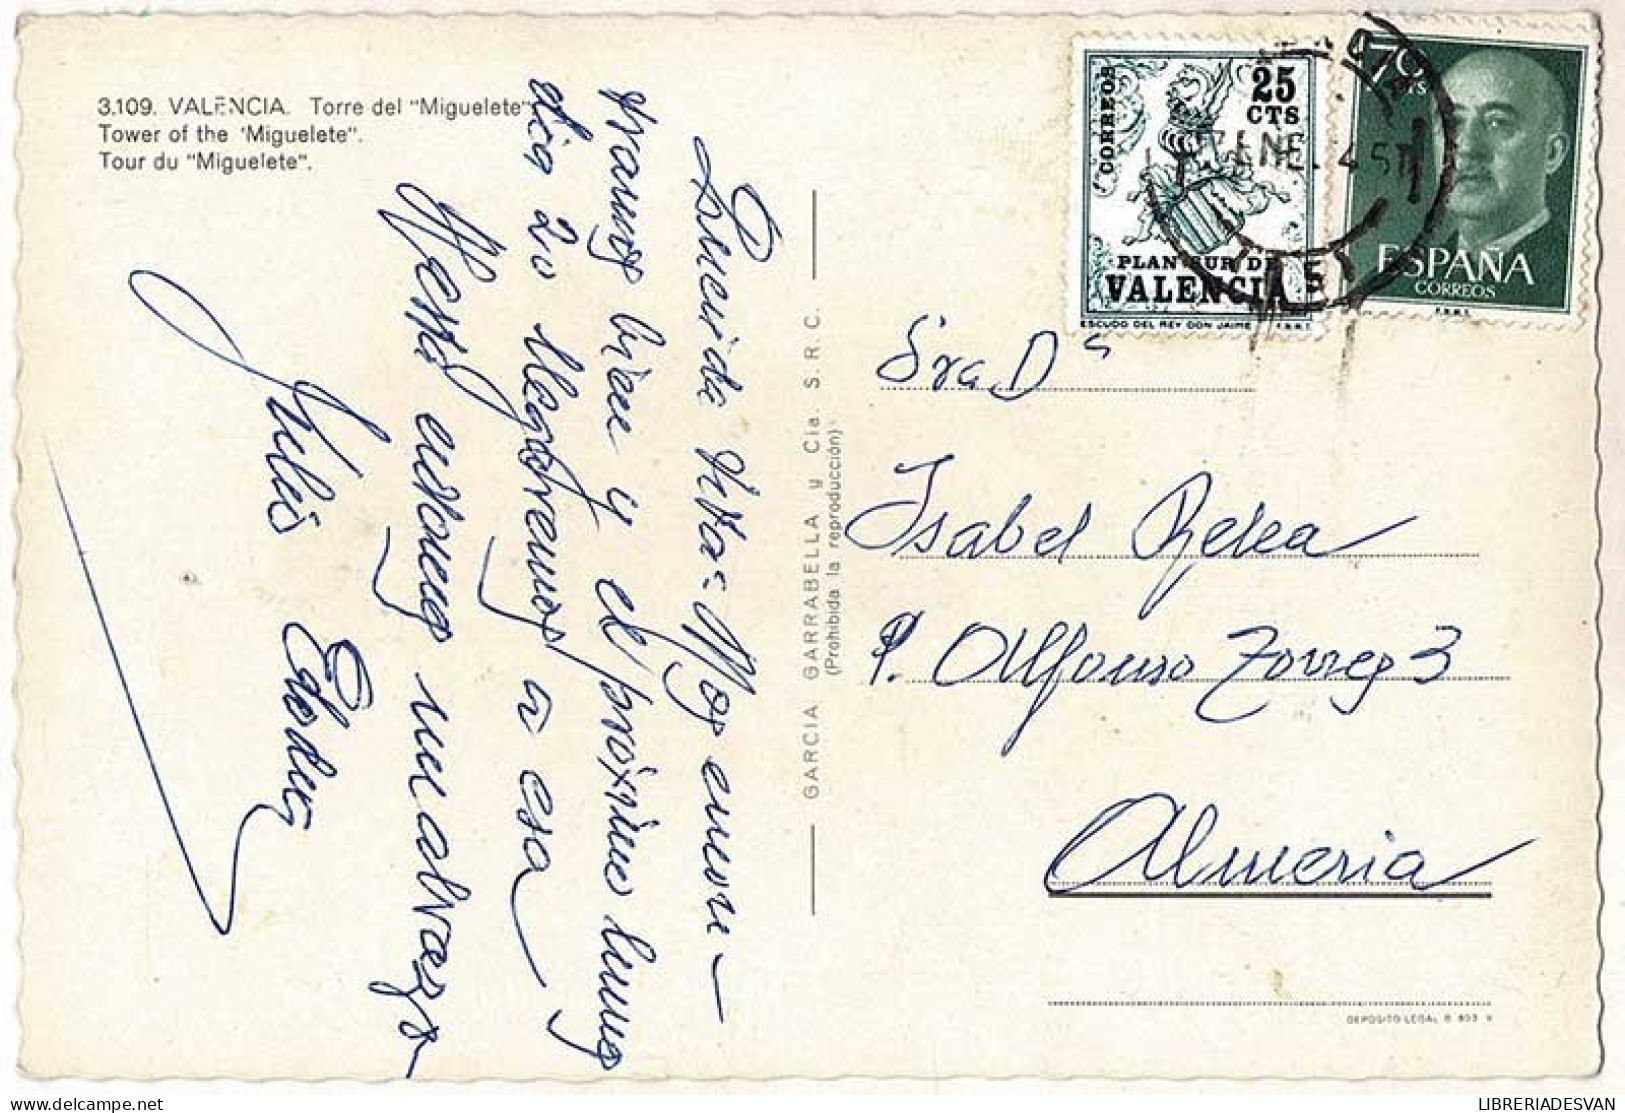 3.109. VALENCIA. Torre del "Miguelete"
Tower of the 'Miguelete".
Tour du "Miguelete".
Querida Nita= Nos encon-
tramos bien y el próximo lunes
dia 20 llegaremos a esa
Hasta entonces un abrazo
Julio
GARCIA GARRABELLA y Cia. S.R.C.
(Prohibida la reproducción)
CORREOS
25
CTS
PLAN SUR DE
VALENCIA
ESCUDO DEL REY DON JAIME F.N.M.T.
70
CTS
ESPAÑA
CORREOS
F.N.M.T.
ENE.
Sra Dª
Isabel Relea
P. Alfonso Torres 3
Almeria
DEPOSITO LEGAL B. 803 V
delcampe.net
LIBRERIADESVAN